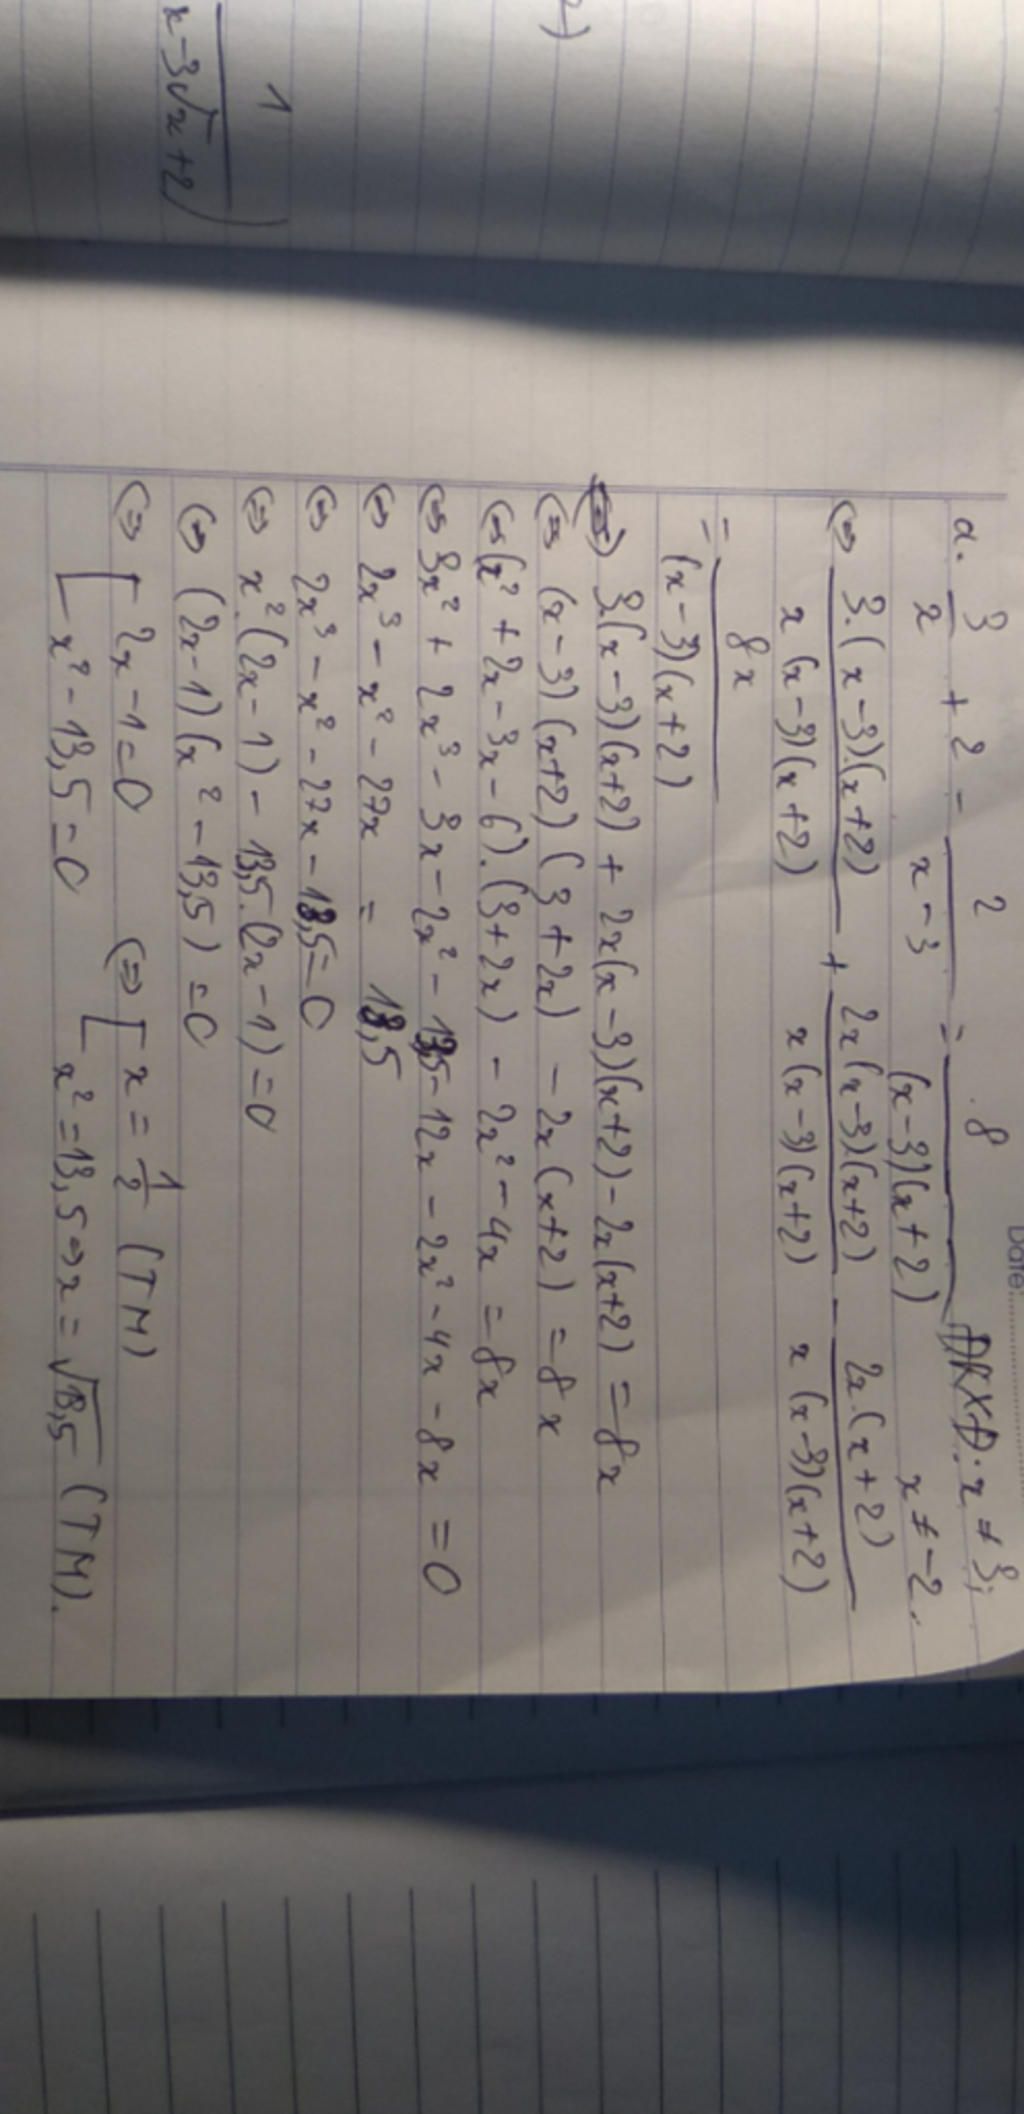 2)
1
x-3√x+2)
Date:
a. 3/x + 2 - 2/(x-3) = 8/((x-3)(x+2)) ĐKXĐ: x ≠ 3;
x ≠ -2.
(=) 3.(x-3).(x+2)/(x(x-3)(x+2)) + 2x(x-3)(x+2)/(x(x-3)(x+2)) - 2x.(x+2)/(x(x-3)(x+2))
= 8x/((x-3)(x+2))
(=) 3.(x-3)(x+2) + 2x(x-3)(x+2) - 2x(x+2) = 8x
(=) (x-3)(x+2)(3+2x) - 2x(x+2) = 8x
(=) (x² + 2x - 3x - 6).(3+2x) - 2x² - 4x = 8x
(=) 3x² + 2x³ - 3x - 2x² - 13,5 - 12x - 2x² - 4x - 8x = 0
(=) 2x³ - x² - 27x = 13,5
(=) 2x³ - x² - 27x - 13,5 = 0
(=) x².(2x-1) - 13,5.(2x-1) = 0
(=) (2x-1)(x² - 13,5) = 0
(=) [ 2x-1 = 0 (=) [ x = 1/2 (TM)
x² - 13,5 = 0 x² = 13,5 (=) x = √13,5 (TM).